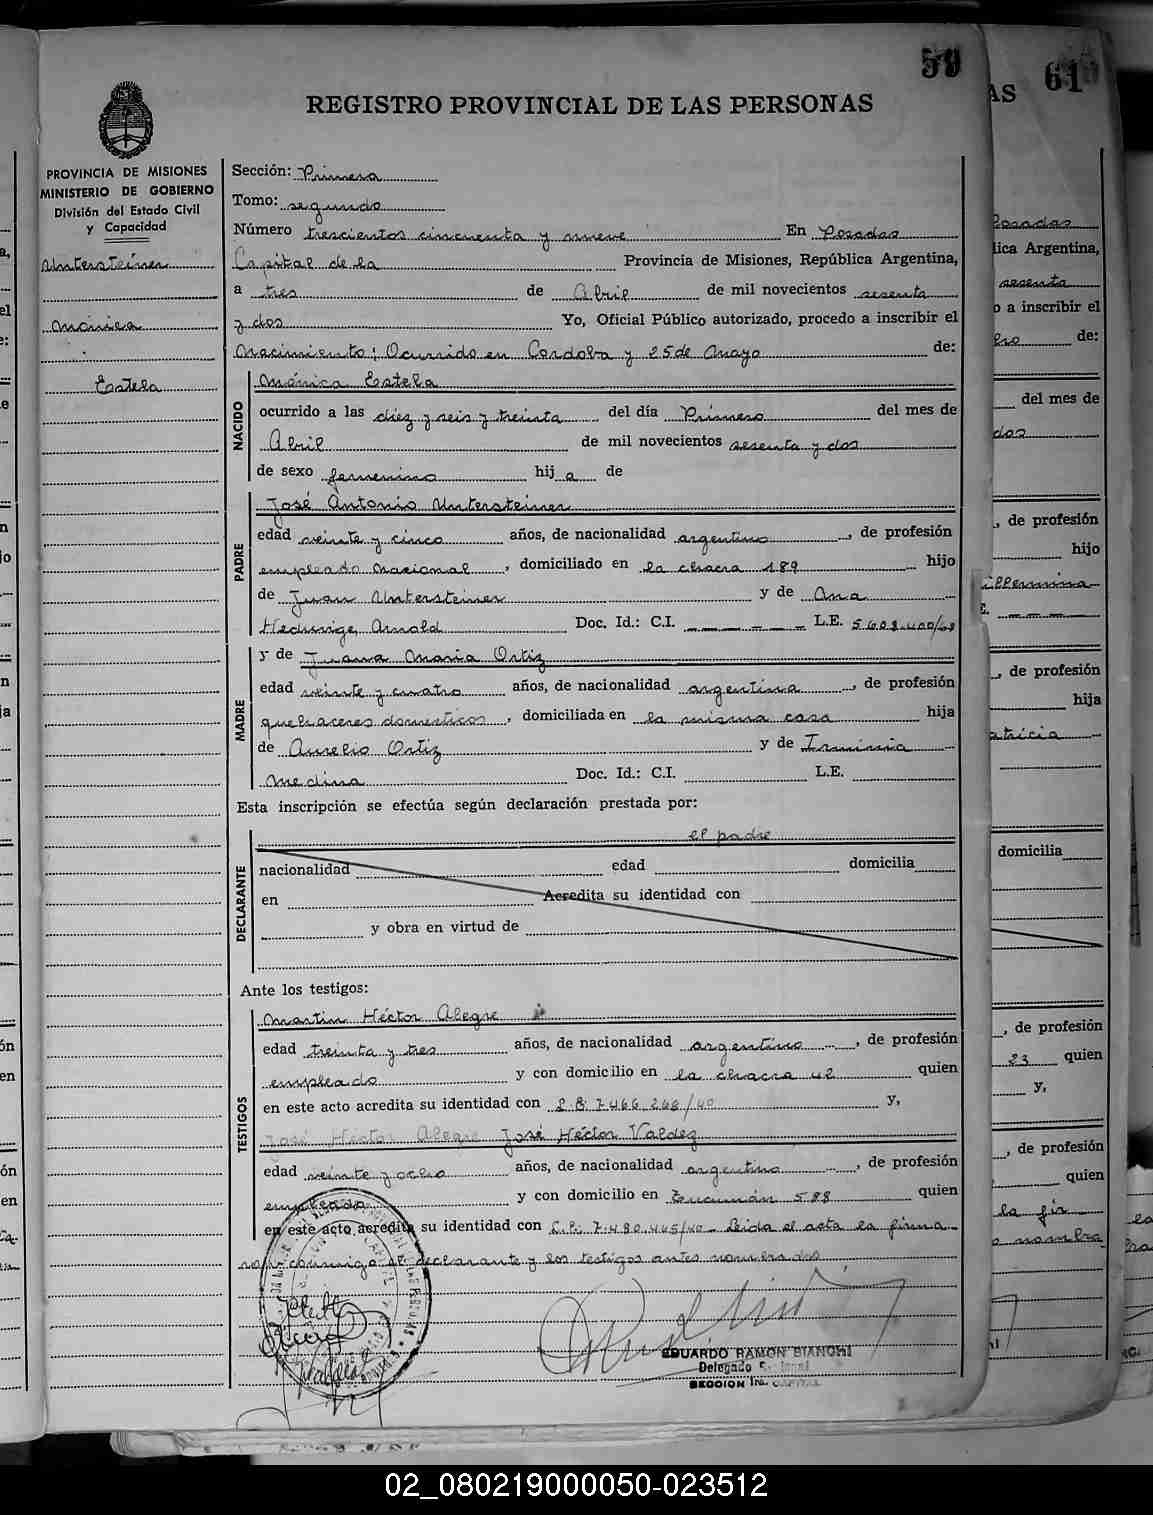 59
REGISTRO PROVINCIAL DE LAS PERSONAS
PROVINCIA DE MISIONES
MINISTERIO DE GOBIERNO
División del Estado Civil
y Capacidad
Untersteiner
Mónica
Estela
Sección: Primera
Tomo: segundo
Número trescientos cincuenta y nueve En Posadas
Capital de la Provincia de Misiones, República Argentina,
a tres de Abril de mil novecientos sesenta
y dos Yo, Oficial Público autorizado, procedo a inscribir el
Nacimiento: Ocurrido en Cordoba y 25 de Mayo de:
NACIDO
Mónica Estela
ocurrido a las diez y seis y treinta del día Primero del mes de
Abril de mil novecientos sesenta y dos
de sexo femenino hija de
PADRE
José Antonio Untersteiner
edad veinte y cinco años, de nacionalidad argentino, de profesión
empleado nacional, domiciliado en la chacra 189 hijo
de Juan Untersteiner y de Ana
Heduvige Arnold Doc. Id.: C.I. L.E.
MADRE
y de Juana Maria Ortiz
edad veinte y cuatro años, de nacionalidad argentina, de profesión
quehaceres domesticos, domiciliada en la misma casa hija
de Aurelio Ortiz y de
Medina Doc. Id.: C.I. L.E.
Esta inscripción se efectúa según declaración prestada por:
DECLARANTE
el padre
nacionalidad edad domicilia
en Acredita su identidad con
y obra en virtud de
Ante los testigos:
TESTIGOS
Martin Héctor Alegre
edad treinta y tres años, de nacionalidad argentino, de profesión
empleado y con domicilio en la chacra 42 quien
en este acto acredita su identidad con y,
José Héctor Alegre José Héctor Valdez
edad veinte y ocho años, de nacionalidad argentino, de profesión
empleado y con domicilio en Tucumán 588 quien
en este acto acredita su identidad con Leida el acta la firma
conmigo el declarante y los testigos antes nombrados
EDUARDO RAMON BIANCHI
Delegado
SECCION 1ra. CAPITAL
61
AS
Posadas
lica Argentina,
sesenta
o a inscribir el
de:
del mes de
dos
, de profesión
hijo
, de profesión
hija
atricia
domicilia
, de profesión
23 quien
y,
, de profesión
quien
la fir
nombra
02_080219000050-023512